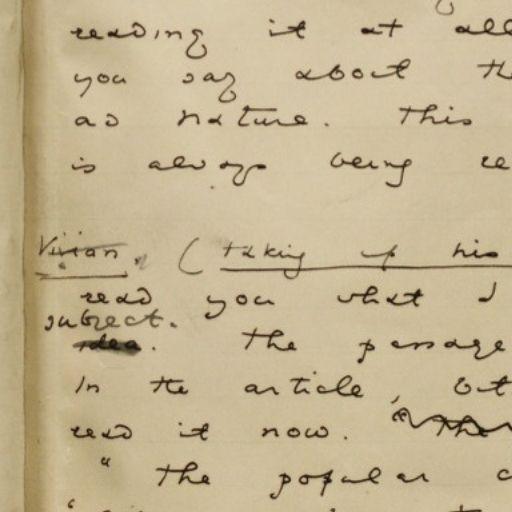 reading it at all
you say about th
as nature. This
is always being re
Vivian. ( taking up his
read you what I
subject.
idea. The passage
in the article, but
read it now. The
" The popular c